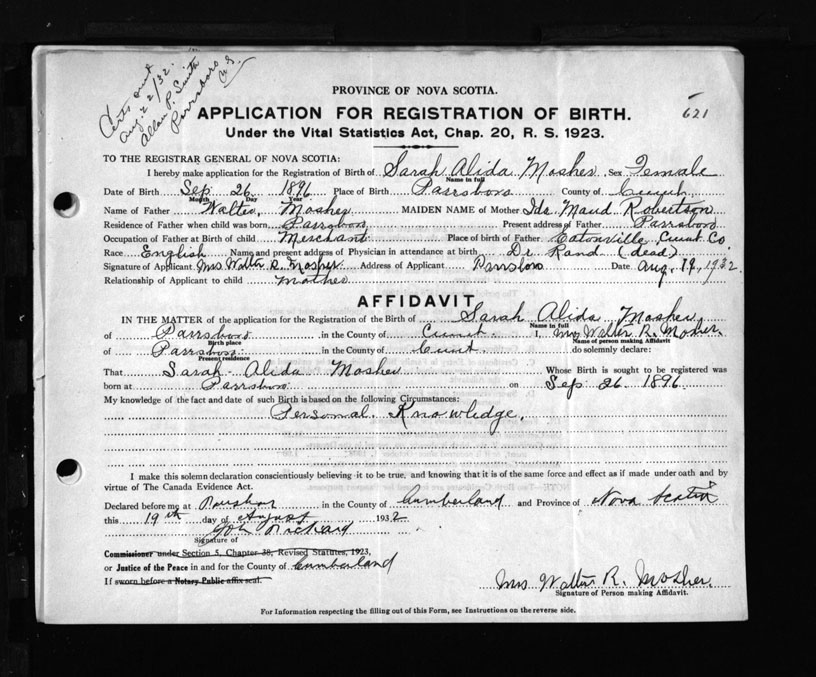 Certs out
Aug. 22/32.
Allan P. Smith
Parrsboro
N S
621
PROVINCE OF NOVA SCOTIA.
APPLICATION FOR REGISTRATION OF BIRTH.
Under the Vital Statistics Act, Chap. 20, R. S. 1923.
TO THE REGISTRAR GENERAL OF NOVA SCOTIA:
I hereby make application for the Registration of Birth of Sarah Alida Mosher Sex Female
Name in full
Date of Birth Sep. 26. 1896 Place of Birth Parrsboro County of Cumb
Month Day Year
Name of Father Walter Mosher MAIDEN NAME of Mother Ida Maud Robertson
Residence of Father when child was born Parrsboro Present address of Father Parrsboro
Occupation of Father at Birth of child Merchant Place of birth of Father Eatonville, Cumb. Co.
Race English Name and present address of Physician in attendance at birth Dr Rand (dead)
Signature of Applicant Mrs Walter R. Mosher Address of Applicant Parrsboro Date Aug. 19, 1932.
Relationship of Applicant to child Mother
AFFIDAVIT
IN THE MATTER of the application for the Registration of the Birth of Sarah Alida Mosher
Name in full
of Parrsboro in the County of Cumb. I, Mrs Walter R. Mosher.
Birth place Name of person making Affidavit
of Parrsboro in the County of Cumb. do solemnly declare:
Present residence
That Sarah Alida Mosher Whose Birth is sought to be registered was
born at Parrsboro on Sep 26 1896.
My knowledge of the fact and date of such Birth is based on the following Circumstances:
Personal Knowledge.
I make this solemn declaration conscientiously believing it to be true, and knowing that it is of the same force and effect as if made under oath and by
virtue of The Canada Evidence Act.
Declared before me at Parrsboro in the County of Cumberland and Province of Nova Scotia
this 19th day of August 1932
Signature of
Commissioner under Section 5, Chapter 38, Revised Statutes, 1923,
or Justice of the Peace in and for the County of Cumberland
If sworn before a Notary Public affix seal.
Mrs Walter R. Mosher.
Signature of Person making Affidavit.
For Information respecting the filling out of this Form, see Instructions on the reverse side.